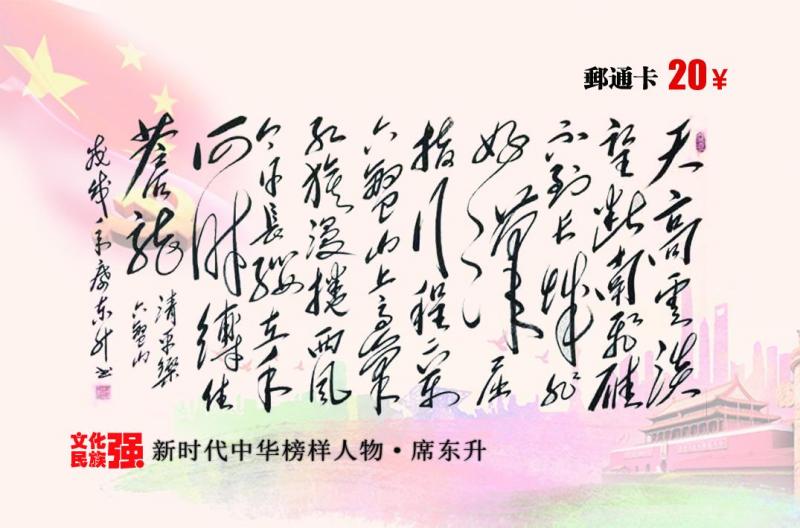 郵通卡 20¥
天高雲淡
望断南飛雁
不到长城非
好漢屈
指行程二万
六盤山上高峰
红旗漫捲西风
今日長缨在手
何時縛住
蒼龍
清平樂
六盤山
戊戌年席东升书
文化
民族
强
新时代中华榜样人物·席东升